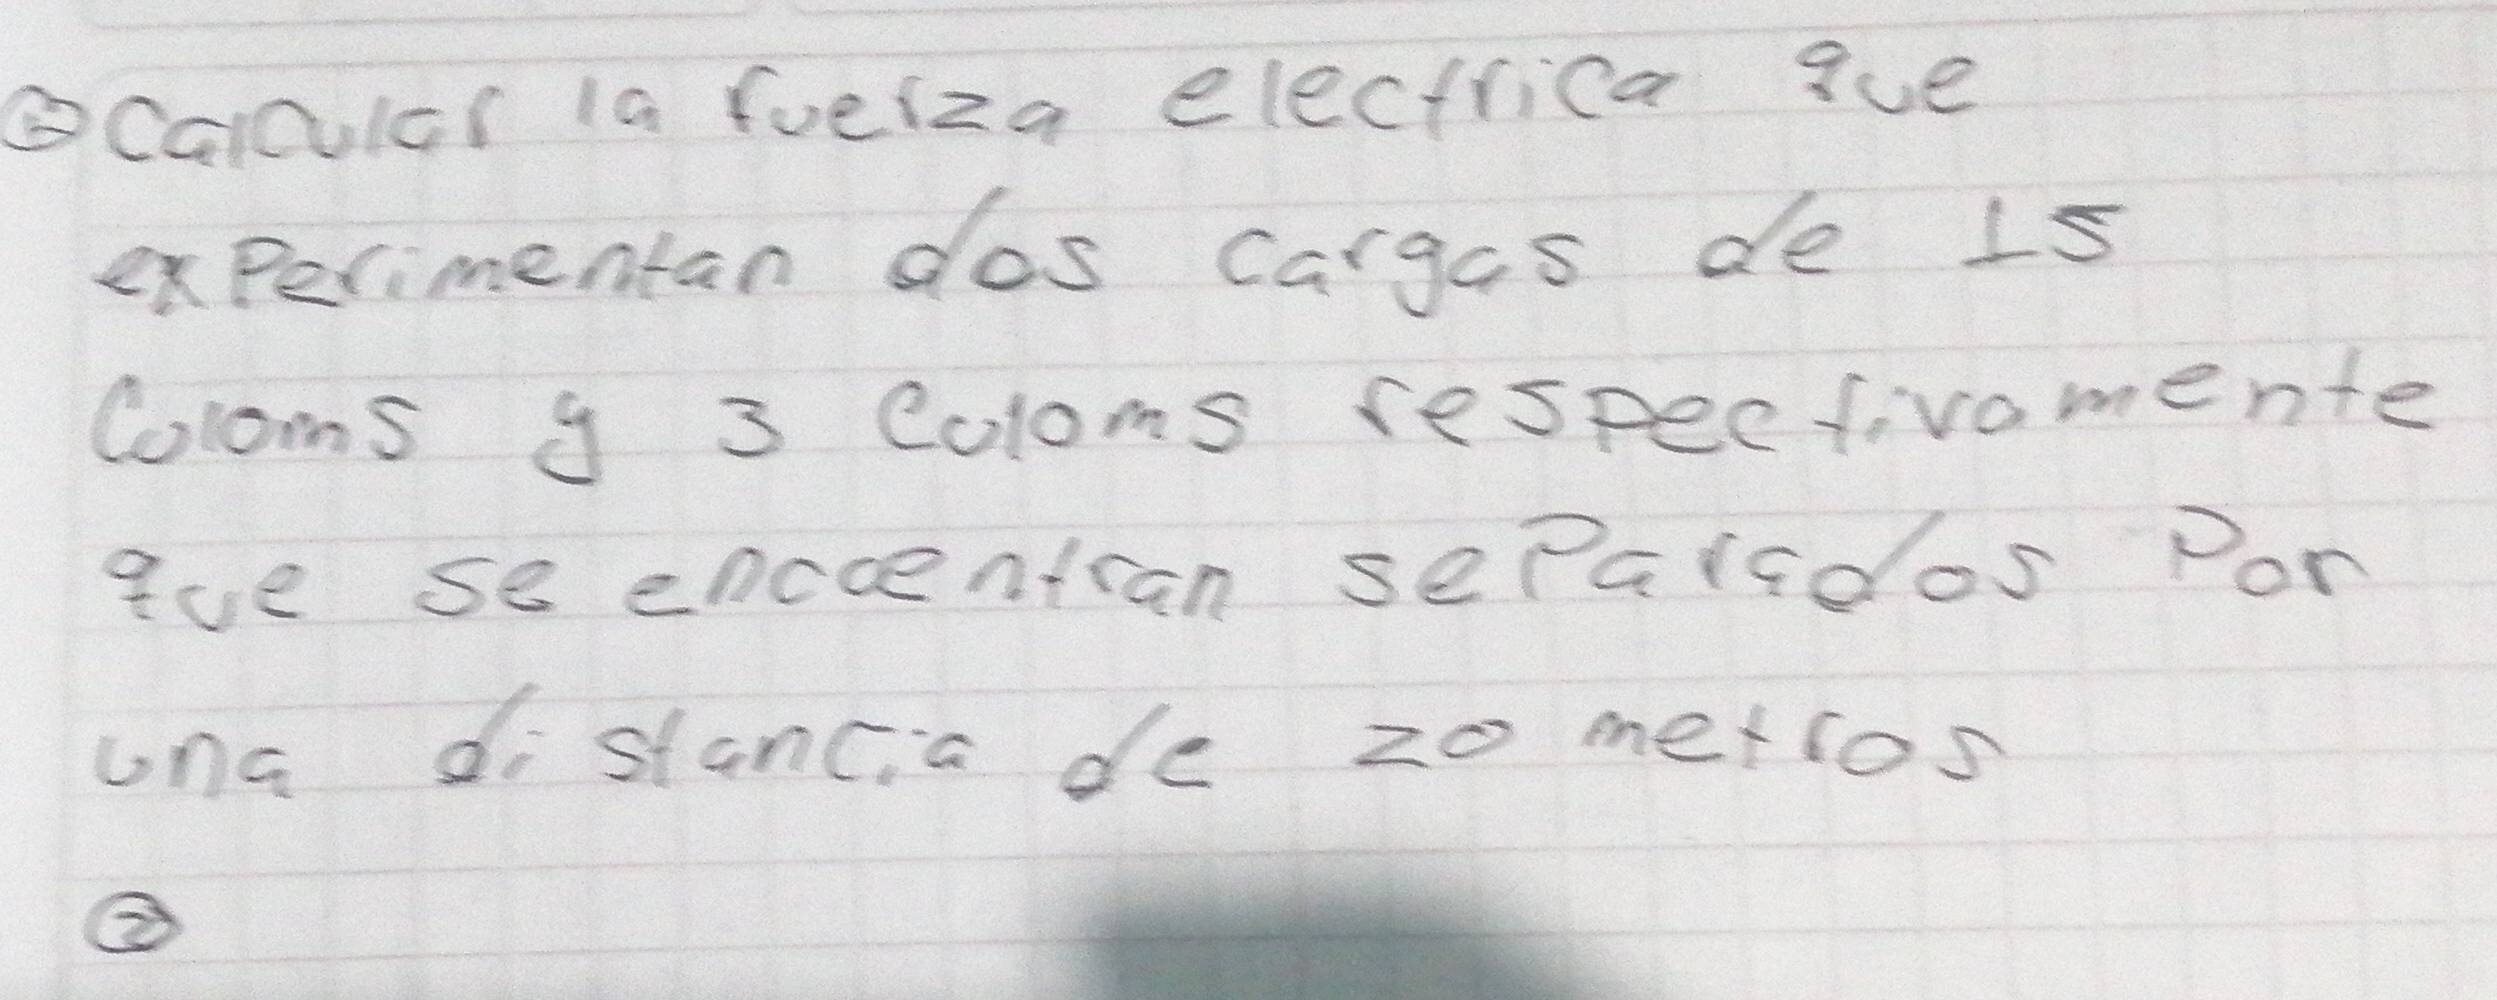 ② Calcular la fuerza electrica que
experimentan dos cargas de 15
Coloms y 3 Culoms respectivamente
que se enccentran separados por
una distancia de 20 metros
②